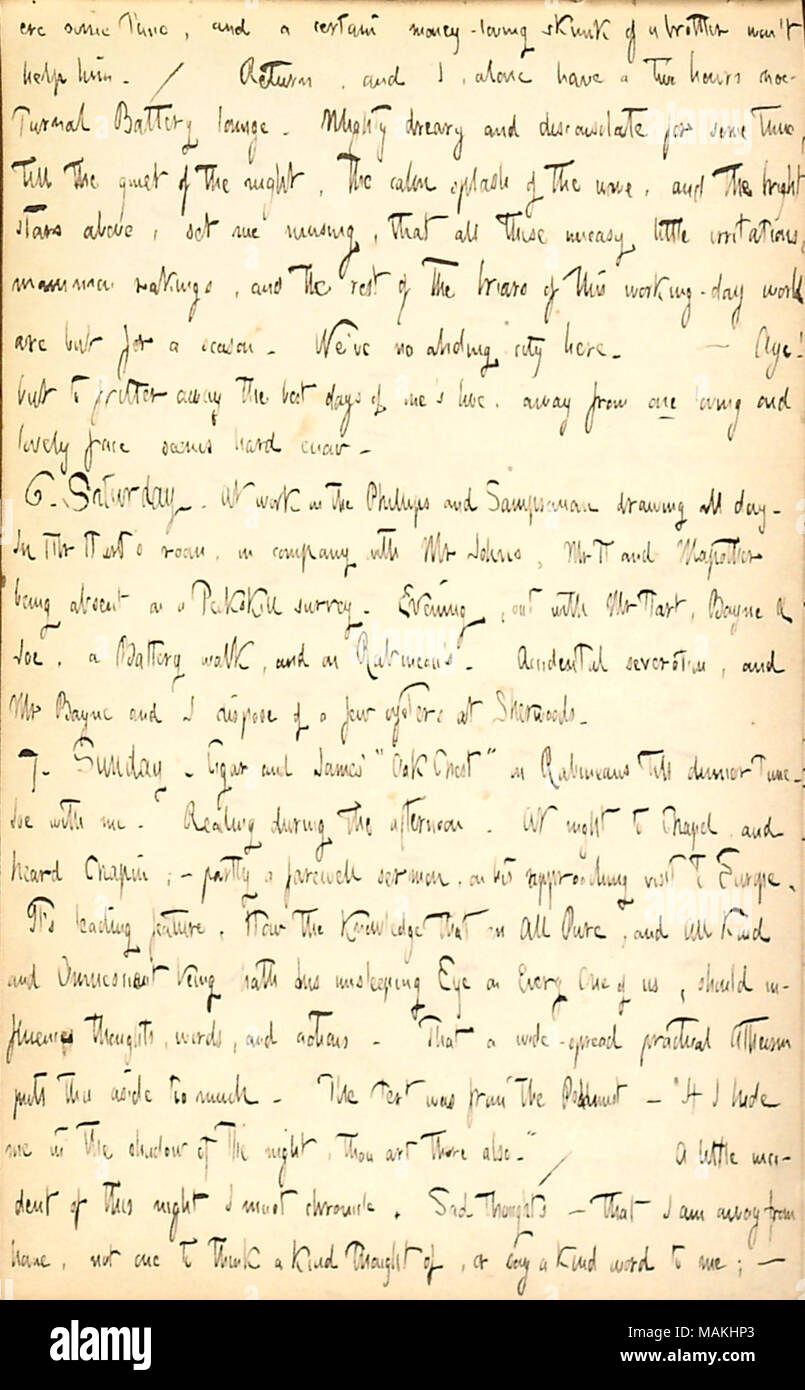 ere some time, and a certain money-loving skunk of a brother won't
help him. / Return, and I, alone have a two hours noc-
turnal Battery lounge. Mighty dreary and disconsolate for some time,
till the quiet of the night, the calm splash of the wave, and the bright
stars above, set me musing, that all these uneasy little irritations,
mammon rakings, and the rest of the briars of this working-day world
are but for a season. We've no abiding city here. — Aye!
but to fritter away the best days of one's live, away from one loving and
lovely face seems hard enow.
6. Saturday. At work on the Phillips and Sampsonian drawing all day.
In Mr Hart's room, in company with Mr Johns, Mr H and Mapother
being absent on a Peekskill survey. Evening, out with Mr Hart, Bayne &
Joe, a Battery walk, and on Rabineau's. Accidental severation, and
Mr Bayne and I dispose of a few oysters at Sherwoods.
7. Sunday. Cigar and James' "Oak Chest" on Rabineaus till dinner time.
Joe with me. Reading during the afternoon. At night to Chapel and
heard Chapin; — partly a farewell sermon, on his approaching visit to Europe.
It's leading feature, How the Knowledge that an All Pure, and All Kind
and Omniscient being hath his unsleeping Eye on Every One of us, should in-
fluence thoughts, words, and actions. That a wide-spread practical Atheism
puts this aside too much. The text was from the Psalmist — "If I hide
me in the shadow of the night, thou art there also." / A little inci-
dent of this night I must chronicle. Sad thoughts — that I am away from
home, not one to think a kind thought of, or say a kind word to me; —
alamy
Image ID: MAKHP3
www.alamy.com